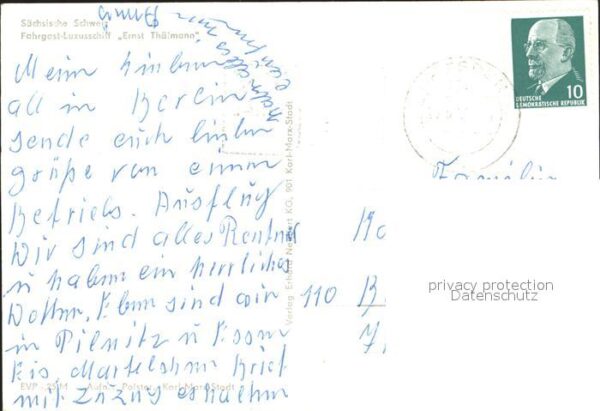 Sächsische Schweiz
Fahrgast-Luxusschiff „Ernst Thälmann"
Mein lieben
all in Berlin
sende euch lieben
grüße von einem
Betriebs. Ausflug
Wir sind alles Rentner
u haben ein herrliches
Wetter. Eben sind wir
in Pilnitz u Essen
Eis, Martelohm Brief
mit Zuzug erhalten
EVP -,25 M Aufn. Polster, Karl-Marx-Stadt
Verlag Erhard Neubert KG, 901 Karl-Marx-Stadt
DEUTSCHE
DEMOKRATISCHE REPUBLIK
10
Familie
110 B
privacy protection
Datenschutz